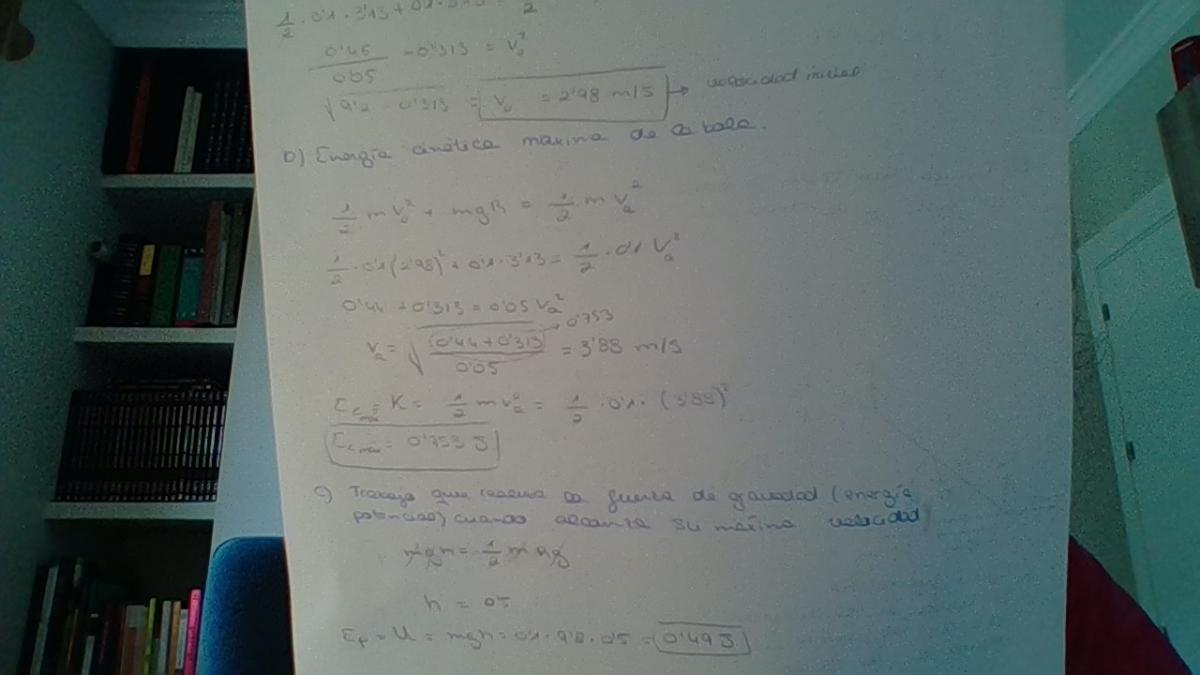 1/2 · 0'1 · 3'13 + 0'1 · 3'13 = /2
0'46/0'05 - 0'313 = V₀²
√9'2 - 0'313 = V₀ = 2'98 m/s → velocidad inicial
b) Energía cinética máxima de la bola.
1/2 m V₀² + mgh = 1/2 m Va²
1/2 · 0'1 (2'98)² + 0'1 · 3'13 = 1/2 · 0'1 Va²
0'44 + 0'313 = 0'05 Va²
Va = √(0'44 + 0'313)/0'05 = 3'88 m/s → 0'753
Ec máx = K = 1/2 m Va² = 1/2 · 0'1 · (3'88)²
Ec máx = 0'753 J
c) Trabajo que realiza la fuerza de gravedad (energía
potencial) cuando alcanza su máxima velocidad
mgh = 1/2 m
h = 0'5
Ep = U = mgh = 0'1 · 9'8 · 0'5 = 0'49 J